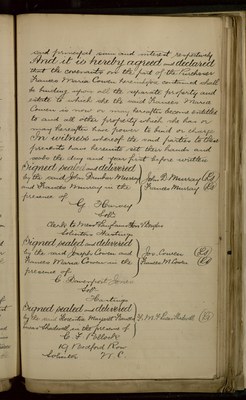 said principal sum and interest respectively
And it is hereby agreed and declared
that the covenants on the part of the Purchaser
Frances Maria Cowen hereinbefore contained shall
be binding upon all the separate property and
estate to which she the said Frances Maria
Cowen is now or may hereafter become entitled
to and all other property which she has or
may hereafter have power to bind or charge
In witness whereof the said parties to these
presents have hereunto set their hands and
seals the day and year first before written
Signed sealed and delivered
by the said John Dunbar Murray
and Frances Murray in the
presence of
John D. Murray
Frances Murray
G Harvey
Solr
Clerk to
Solicitor Hastings
Signed sealed and delivered
by the said Joseph Cowen and
Frances Maria Cowen in the
presence of
Jos. Cowen
Frances M. Cowen
C Davenport Jones
Solr
Hastings
Signed sealed and delivered
by the said Margaret
Chadwick in the presence of
Chadwick
C F
19 Bedford Row
Solicitor W.C.